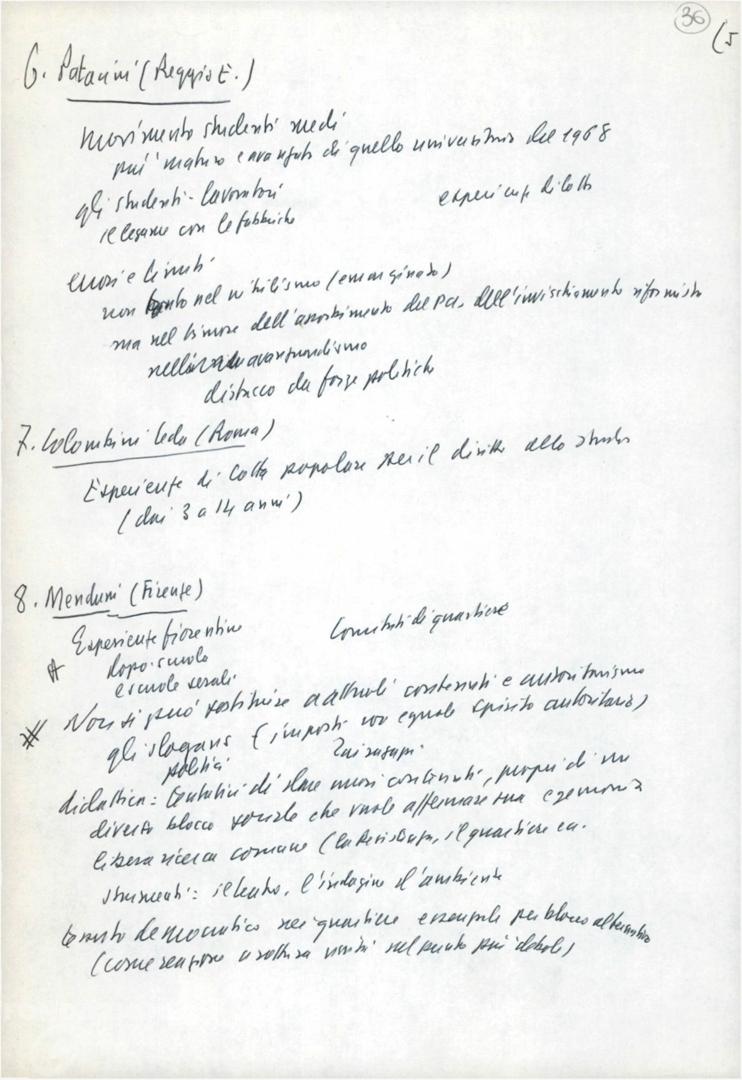 36
(5
6. Patacini (Reggio E.)
movimento studenti medi
piu' maturo e avanzato di quello universitario del 1968
gli studenti-lavoratori esperienze di lotta
il legame con le fabbriche
errori e limiti
non tanto nel nihilismo (emarginato)
ma nel timore dell'assorbimento del PCI, dell'invischiamento riformista
avanguardismo
distacco da forze politiche
7. Colombini Leda (Roma)
Esperienze di lotta popolare per il diritto allo studio
(dai 3 a 14 anni)
8. Menduni (Firenze)
Esperienze fiorentine Comitati di quartiere
doposcuola
e scuole serali
Non si può sostituire a attuali contenuti e autoritarismo
gli slogans (imposti con eguale spirito autoritario)
politici
didattica: tentativi di dare nuovi contenuti, propri di un
diverso blocco sociale che vuole affermare sua egemonia
libera ricerca comune (la Resistenza, il quartiere ecc.
strumenti: il teatro, l'indagine d'ambiente
tessuto democratico nei quartiere essenziale per blocco alternativo
(come reazione a rottura nel punto più debole)